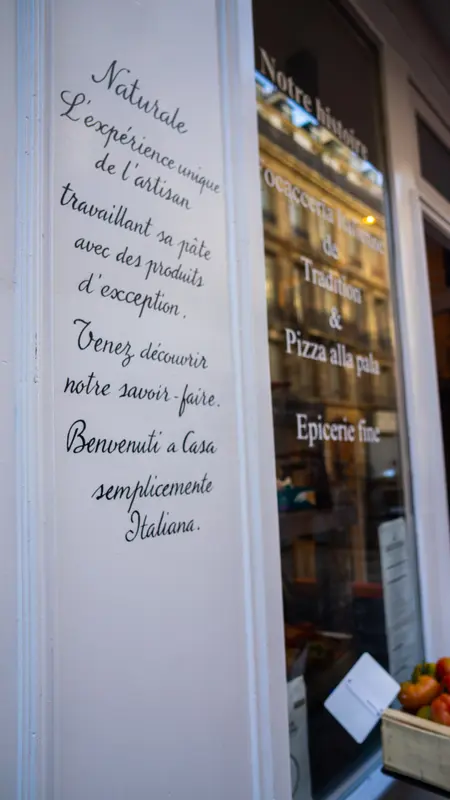 Naturale
L'expérience unique
de l'artisan
travaillant sa pâte
avec des produits
d'exception.
Venez découvrir
notre savoir-faire.
Benvenuti a Casa
semplicemente
Italiana.
Notre histoire
Focacceria
de
Tradition
&
Pizza alla pala
Epicerie fine